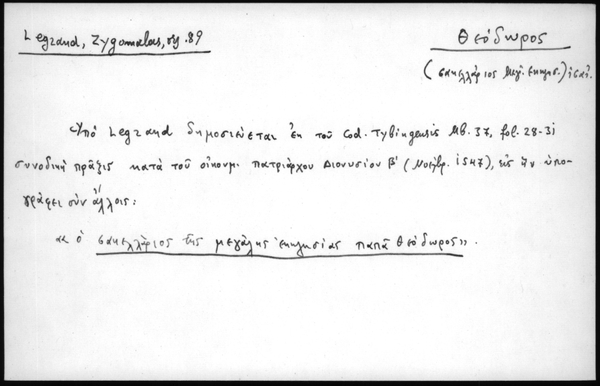 Legrand, Zygomalas, σελ. 89
Θεόδωρος
(σακελλάριος Μεγ. Εκκλησ.)
Ὑπό Legrand δημοσιεύεται ἐκ τοῦ Cod. Tybingensis Mb. 37, fol. 28-31
συνοδική πρᾶξις κατά τοῦ οἰκουμ. πατριάρχου Διονυσίου Β' (Νοεμβρ. 1547), εἰς ἥν ὑπο-
γράφει σύν ἄλλοις:
"ὁ σακελλάριος τῆς μεγάλης ἐκκλησίας παπᾶ Θεόδωρος".